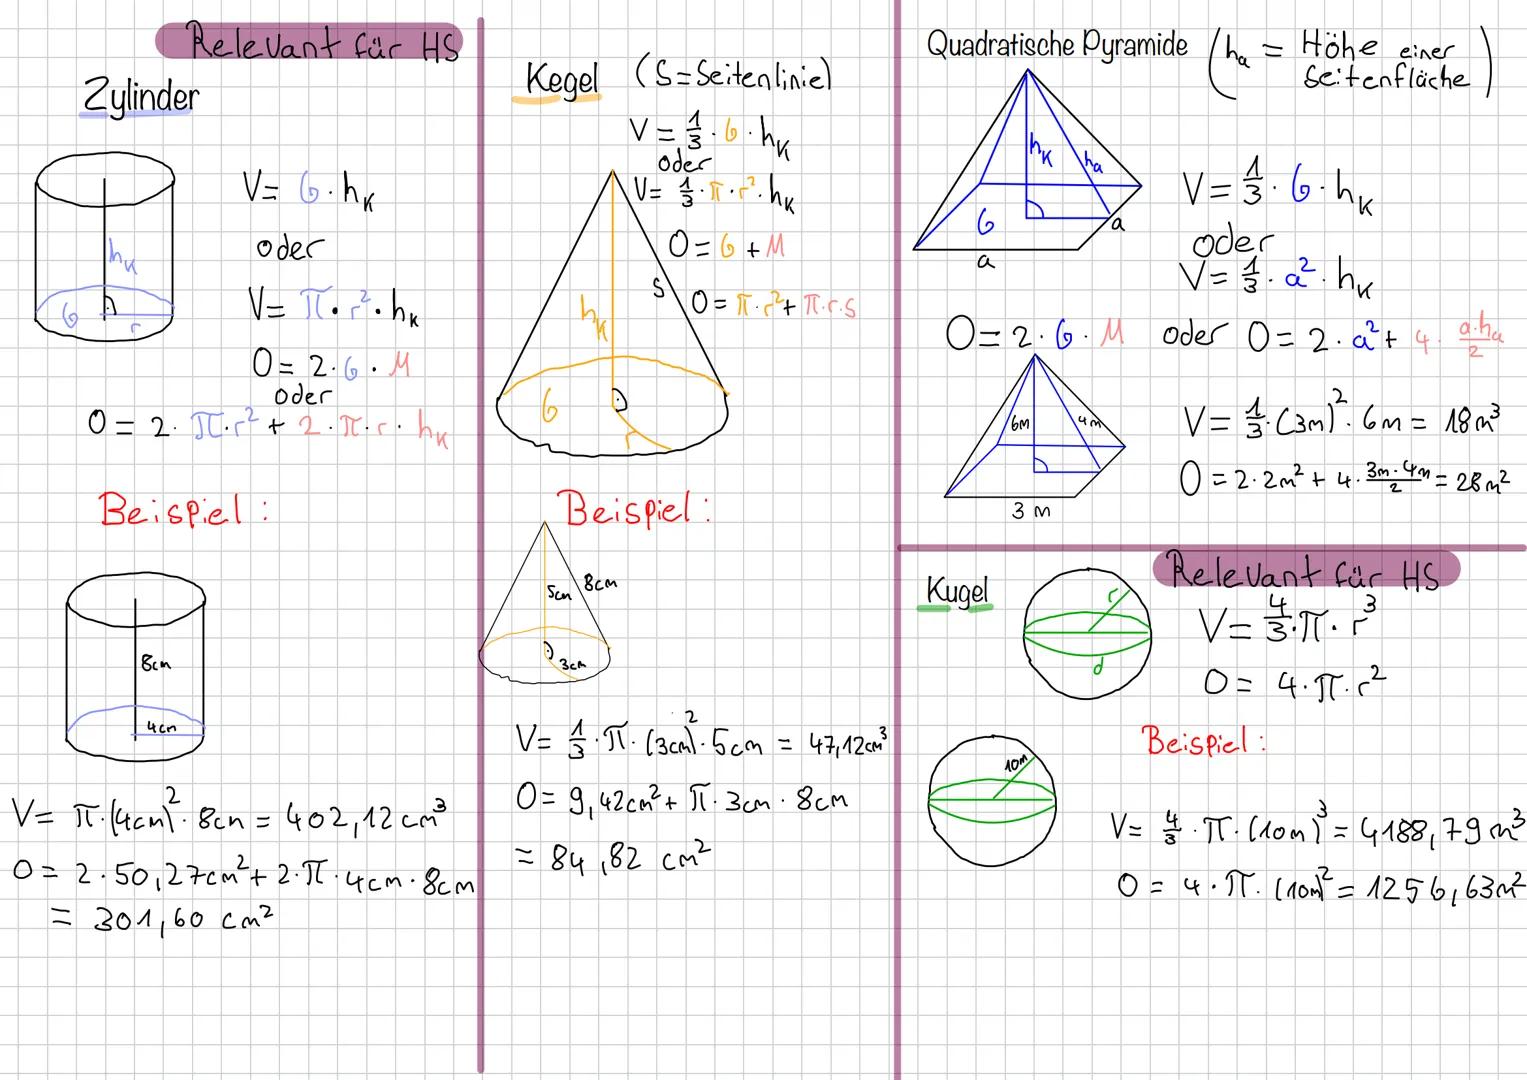 Relevant für HS
Zylinder
V = G · hK
oder
V = π · r² · hK
O = 2 · G · M
oder
O = 2 · π · r² + 2 · π · r · hK
hK
G
r
Beispiel :
8cm
4cm
V = π · (4cm)² · 8cm = 402,12 cm³
O = 2 · 50,27cm² + 2 · π · 4cm · 8cm
= 301,60 cm²
Kegel (S = Seitenlinie)
V = 1/3 · G · hK
oder
V = 1/3 · π · r² · hK
O = G + M
O = π · r² + π · r · s
s
hK
G
r
Beispiel :
5cm
8cm
3cm
V = 1/3 · π · (3cm)² · 5cm = 47,12cm³
O = 9,42cm² + π · 3cm · 8cm
= 84,82 cm²
Quadratische Pyramide (ha = Höhe einer
Seitenfläche)
hK
ha
G
a
a
V = 1/3 · G · hK
oder
V = 1/3 · a² · hK
O = 2 · G · M oder O = 2 · a² + 4 · a·ha/2
6m
4m
3 m
V = 1/3 · (3m)² · 6m = 18m³
O = 2 · 2m² + 4 · 3m·4m/2 = 28m²
Relevant für HS
Kugel
r
d
V = 4/3 · π · r³
O = 4 · π · r²
Beispiel :
10m
V = 4/3 · π · (10m)³ = 4188,79 m³
O = 4 · π · (10m)² = 1256,63m²